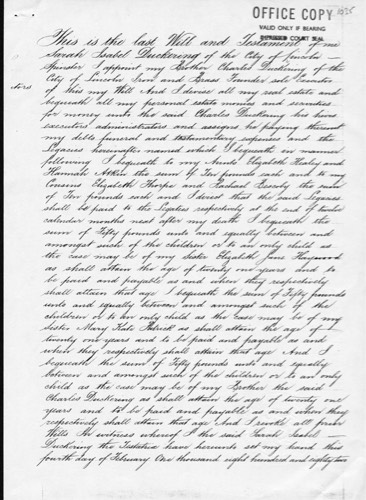 OFFICE COPY
VALID ONLY IF BEARING
COURT SEAL
This is the last Will and Testament of me
Sarah Isabel Duckering of the City of Lincoln
Spinster I appoint my Brother Charles Duckering of the
City of Lincoln Iron and Brass Founder sole Executor
of this my Will And I devise all my real estate and
bequeath all my personal estate monies and securities
for money unto the said Charles Duckering his heirs
executors administrators and assigns he paying thereout
my debts funeral and testamentary expenses and the
Legacies hereinafter named which I bequeath in manner
following I bequeath to my Aunts Elizabeth and
Hannah the sum of Ten pounds each and to my
Cousins Elizabeth Thorpe and Rachael the sum
of Ten pounds each and I direct that the said Legacies
shall be paid to the Legatees respectively at the end of twelve
calendar months next after my death I bequeath the
sum of Fifty pounds unto and equally between and
amongst such of the children or to an only child as
the case may be of my Sister Elizabeth Jane
as shall attain the age of twenty one years and to
be paid and payable as and when they respectively
shall attain that age I bequeath the sum of Fifty pounds
unto and equally between and amongst such of the
children or to an only child as the case may be of my
Sister Mary Kate Patrick as shall attain the age of
twenty one years and to be paid and payable as and
when they respectively shall attain that age And I
bequeath the sum of Fifty pounds unto and equally
between and amongst such of the children or to an only
child as the case may be of my Brother the said
Charles Duckering as shall attain the age of twenty one
years and to be paid and payable as and when they
respectively shall attain that age And I revoke all prior
Wills In witness whereof I the said Sarah Isabel
Duckering the Testatrix have hereunto set my hand this
fourth day of February One thousand eight hundred and eighty two